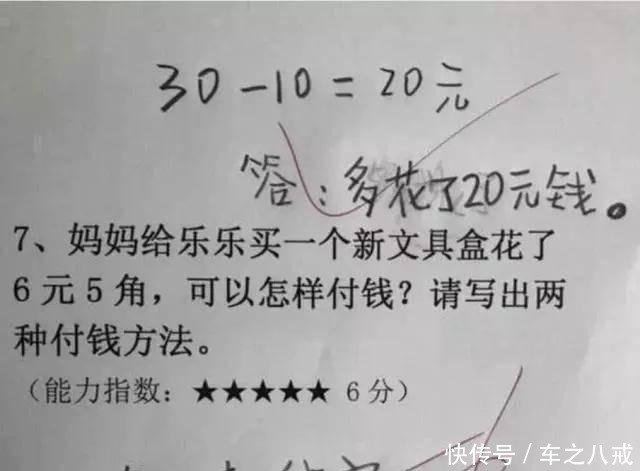 30-10=20元
答:多花了20元钱。
7、妈妈给乐乐买一个新文具盒花了
6元5角，可以怎样付钱？请写出两
种付钱方法。
（能力指数：★★★★★ 6分）
快传号/车之八戒